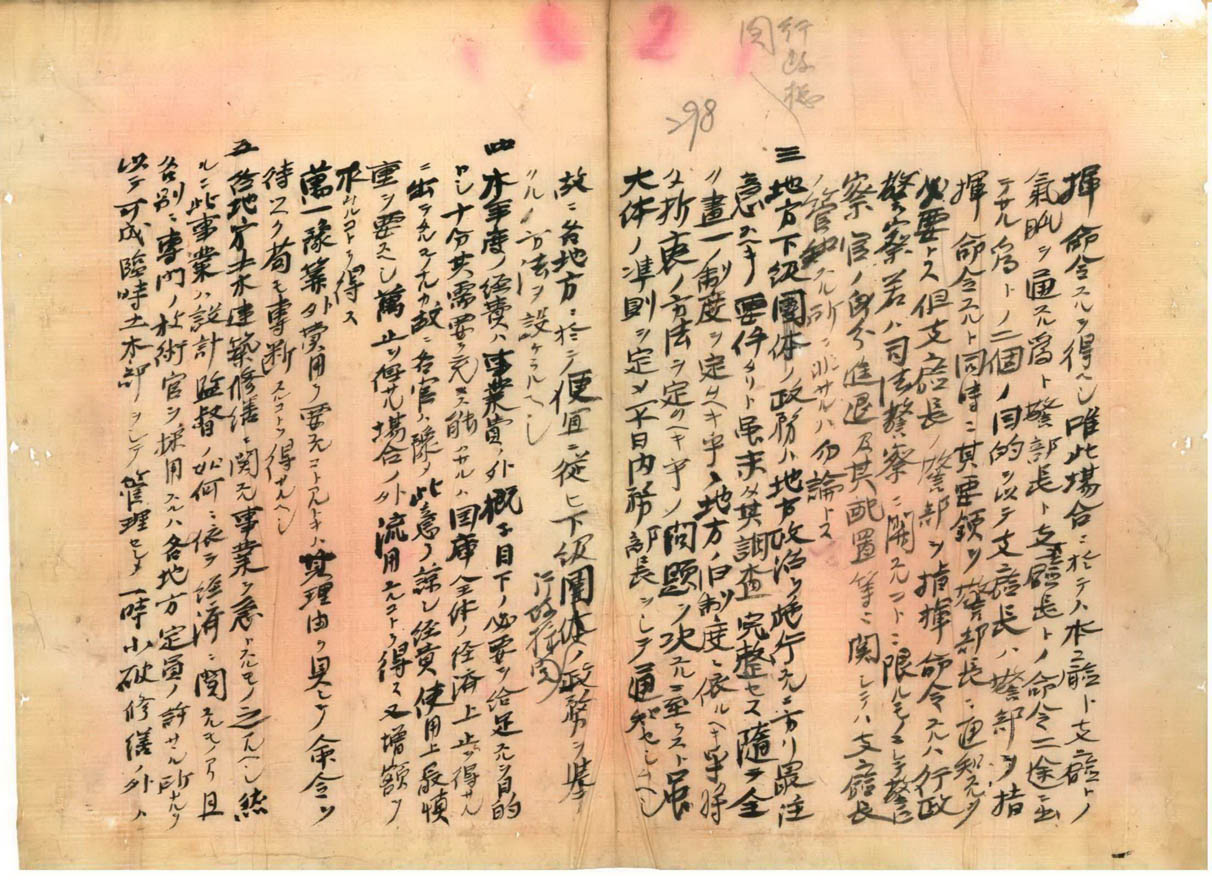 行政機
関
298
揮命令スルヲ得ヘシ唯此場合ニ於テハ本廳ト支廳トノ
氣脈ヲ通スル為ト警部長ト支廳長トノ命令二途ニ出
テサル為トノ二個ノ目的ヲ以テ支廳長ハ警部ヲ指
揮命令スルト同時ニ其要領ヲ警部長ニ通知スルヲ
必要トス但支廳長ノ警部ヲ指揮命令スルハ行政
警察若ハ司法警察ニ関スルコトニ限ルモノニシテ警
察官ノ身分進退及其配置等ニ関シテハ支廳長
ノ管知スル所ニ非サルハ勿論トス
三 地方下級團体ノ政務ハ地方政治ヲ施行スルニ方リ最注
意スヘキ要件タリト虽未タ其調査完整セス隨テ全
ク畫一ノ制度ヲ定ムヘキ乎、地方ノ旧制度ニ依ルヘキ乎将
タ折衷ノ方法ヲ定ムヘキ乎ノ問題ヲ決スルニ至ラスト虽
大体ノ準則ヲ定メ平日内務部長ヲシテ通知セシムヘシ
故ニ各地方ニ於テ便宜ニ従ヒ下級團体ノ政務ヲ挙
クルノ方法ヲ設ケラルヘシ
行政機関
四 本年度ノ経費ハ事業費ノ外概子目下ノ必要ヲ給足スルヲ目的
トシ十分其需要ヲ充ス能ハサルハ国庫全体ノ経済上止ヲ得サル
ニ出テタルモノナルカ故ニ各官ハ豫メ此意ヲ諒シ経費使用上最慎
重ヲ要スヘシ萬止ヲ得サル場合ノ外流用スルコトヲ得ス又増額ヲ
求ムルコトヲ得ス
萬一豫算外ノ費用ヲ要スルコトアルトキハ其理由ヲ具シテ命令ヲ
待ツヘク苟モ専断スルコトヲ得サルヘシ
五 各地方土木建築修繕ニ関スル事業ヲ急トスルモノ之アルヘシ然
ルニ此事業ハ設計監督ノ如何ニ依ヲ経済ニ関スルモノアリ且
各別ニ専門ノ技術官ヲ採用スルハ各地方定員ノ許サル所ナルヲ
以テ可成臨時土木部ヲシテ管理セシメ一時小破修繕ノ外ハ